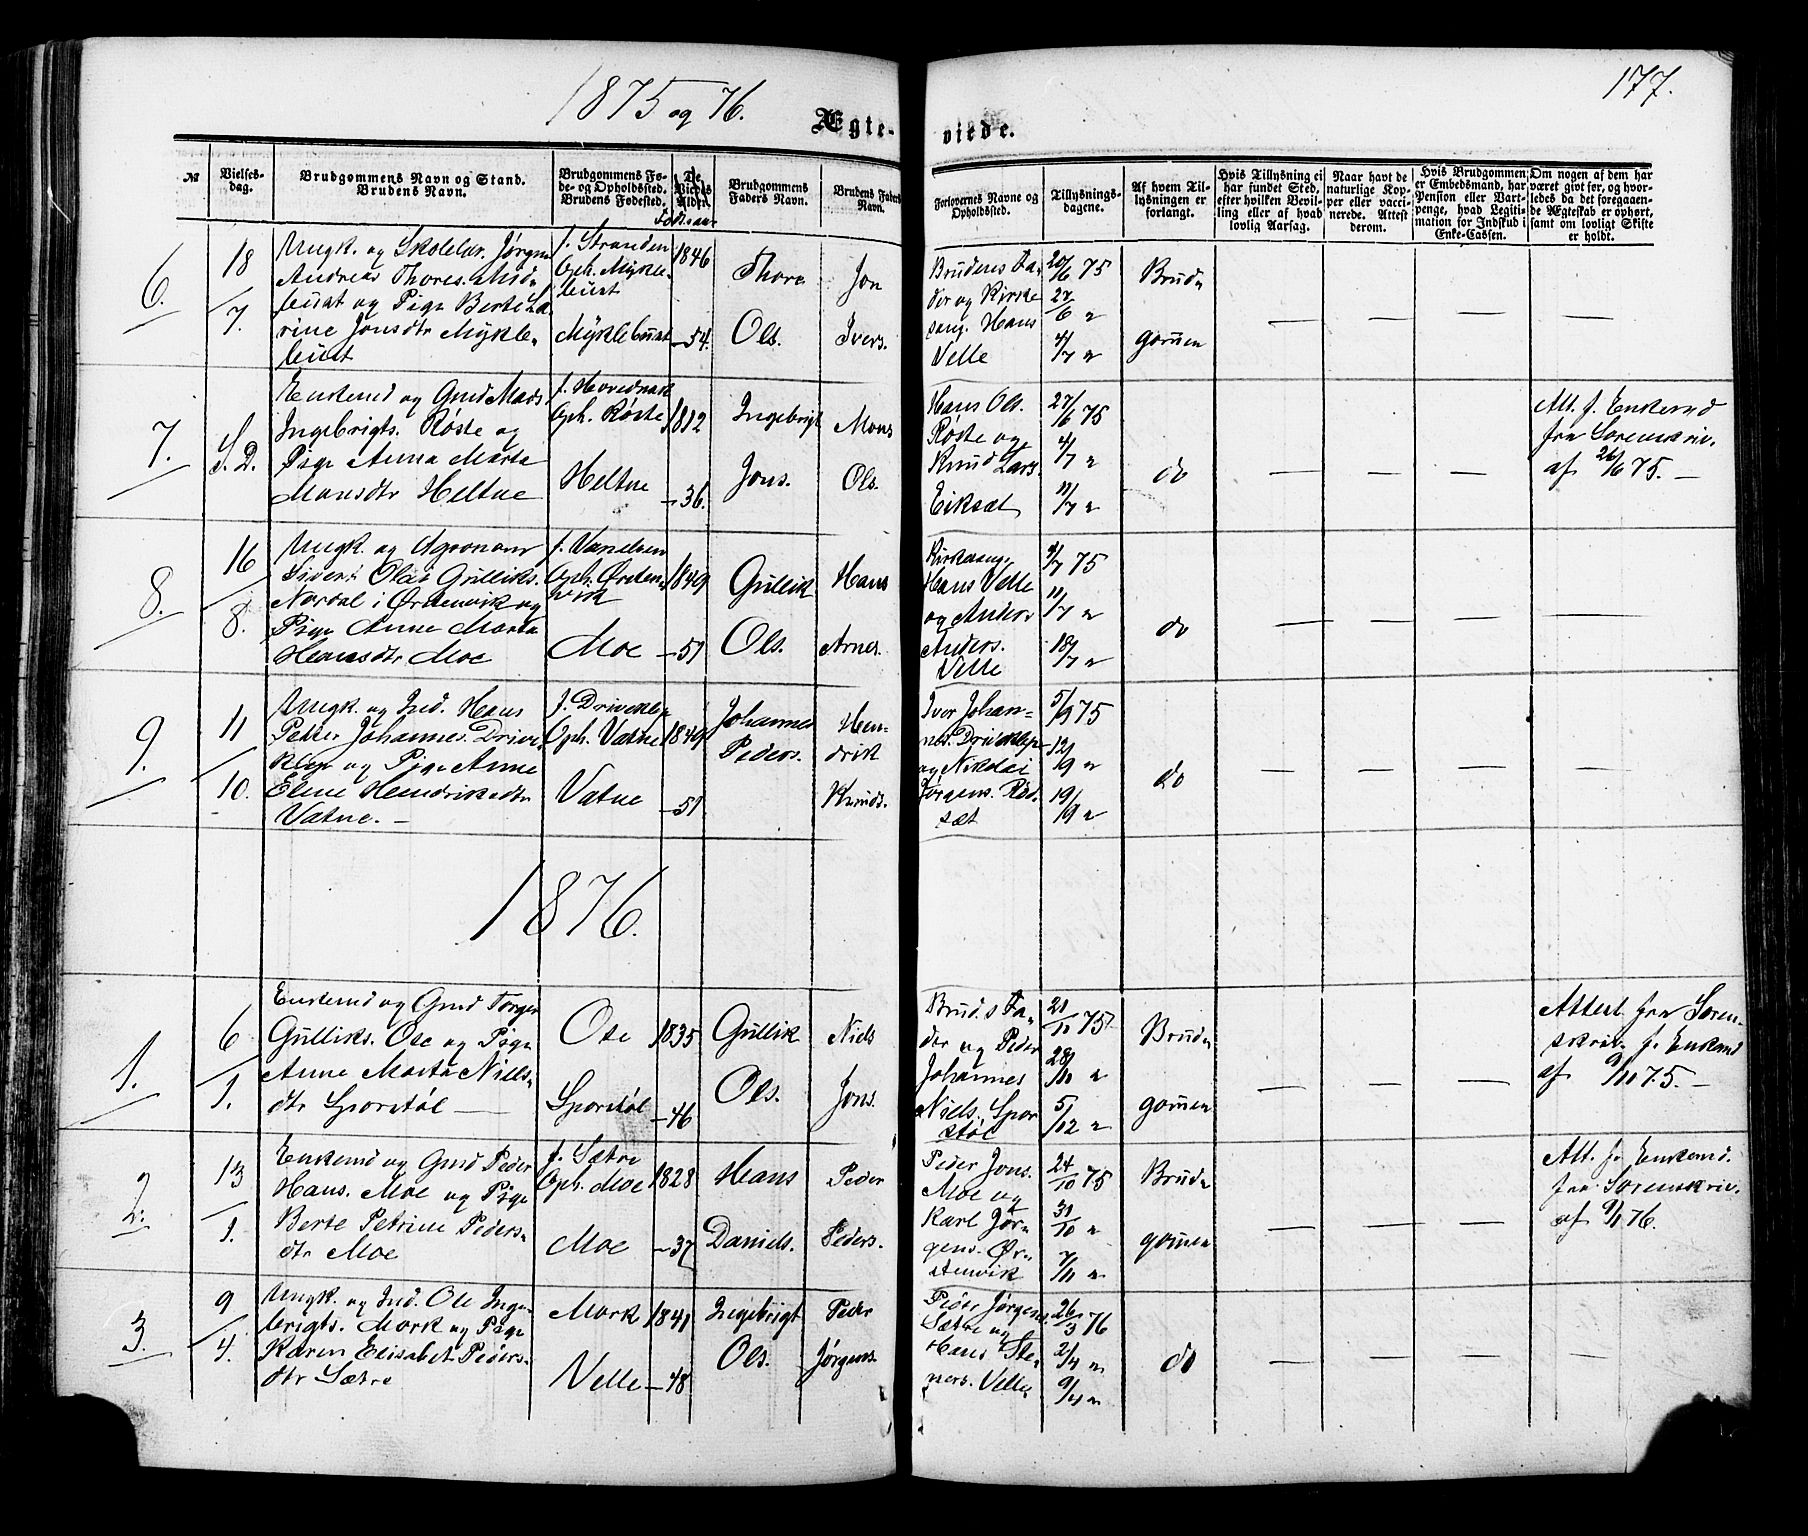 1875 og 76.
177.
Ægte-
viede.
№
Vielses-
dag.
Brudgommens Navn og Stand.
Brudens Navn.
Brudgommens Fø-
de- og Opholdssted.
Brudens Fødested.
De
Viedes
Alder.
Fødselsaar
Brudgommens
Faders Navn.
Brudens Faders
Navn.
Forlovernes Navne og
Opholdssted.
Tillysnings-
dagene.
Af hvem Til-
lysningen er
forlangt.
Hvis Tillysning ei
har fundet Sted,
efter hvilken Bevil-
ling eller af hvad
lovlig Aarsag.
Naar havt de
naturlige Kop-
per eller vacci-
nerede. Attest
derom.
Hvis Brudgommen
er Embedsmand, har
Pension eller Vart-
penge, hvad Legiti-
mation for Indskud i
Enke-Cassen.
Om nogen af dem har
været gift før, og hvor-
ledes da det foregaaen-
de Ægteskab er ophørt,
samt om lovligt Skifte
er holdt.
6.
18/7.
Ungk. og Skolelær. Jørgen
Andreas Thores. Mykle-
bust og Pige Berte La-
rine Jonsdtr Mykle-
bust
f. Stranden
Oph. Mykle-
bust
Myklebust
1846
—54.
Thore
Ols.
Jon
Ivers.
Brudens Fa-
der og Kirke
sang. Hans
Velle
20/6 75
27/6 "
4/7 "
Brud
gommen
— — — —
7.
S. D.
Enkemd og Gmd Mads
Ingebrigts. Røste og
Pige Anna Marta
Monsdtr Heltne
f. Hovednak
Oph. Røste
Heltne
1812
—36.
Ingebrigt
Jons.
Mons
Ols.
Hans Ols.
Røste og
Knud Lars.
Eiksæt
27/6 75
4/7 "
11/7 "
do
— — —
Att. f. Enkemd
fra Sorenskriv.
af 26/6 75. —
8.
16/8.
Ungk. og Agronom
Sivert Olai Gulliks.
Nordal i Ørstenvik og
Pige Anne Marta
Hansdtr Moe
f. Vanelven
Oph. Ørsten-
vik
Moe
1849
—51
Gullik
Ols.
Hans
Arnes.
Kirkesang.
Hans Velle
og Anders
Anders.
Velle
4/7 75
11/7 "
18/7 "
do
— — — —
9.
11/10.
Ungk. og Ind. Hans
Petter Johannes. Drive-
klep og Pige Anne
Eline Hendriksdtr
Vatne. —
f. Driveklep
Oph. Vatne
Vatne
1849
—51
Johannes
Peders.
Hen-
drik
Knuds.
Iver Johan-
nes. Driveklep
og Nikolai
Jørgens. Rød-
sæt
5/9 75
12/9 "
19/9 "
do
— — — —
1876.
1.
6/1.
Enkemd og Gmd Torger
Gulliks. Ose og Pige
Anne Marta Niels-
dtr Sporstøl —
Ose
Sporstøl
1835
—46
Gullik
Ols.
Niels
Jons.
Bruds Fa-
der og Peder
Johannes
Niels. Spor
støl
21/11 75
28/11 "
5/12 "
Brud
gommen
— — —
Attest fra Soren-
skriv. f. Enkemd
af 9/11 75. —
2.
13/1.
Enkemd og Gmd Peder
Hans. Moe og Pige
Berte Petrine Peders-
dtr Moe
f. Sætre
Oph. Moe
Moe
1828
—37
Hans
Daniels.
Peder
Peders.
Peder Jons.
Moe og
Karl Jør-
gens. Ør-
stenvik
24/10 75
31/10 "
7/11 "
Brud
gommen
— — —
Att. f. Enkemd.
fra Sorenskriv.
af 9/1 76.
3.
9/4.
Ungk. og Ind. Ole Inge-
brigts. Mork og Pige
Karen Elisabet Peders-
dtr Sætre
Mork
Velle
1841
—48
Ingebrigt
Ols.
Peder
Jørgens.
Peder Jørgens.
Sætre og
Hans Ste-
ners. Velle
26/3 76
2/4 "
9/4 "
do
— — — —